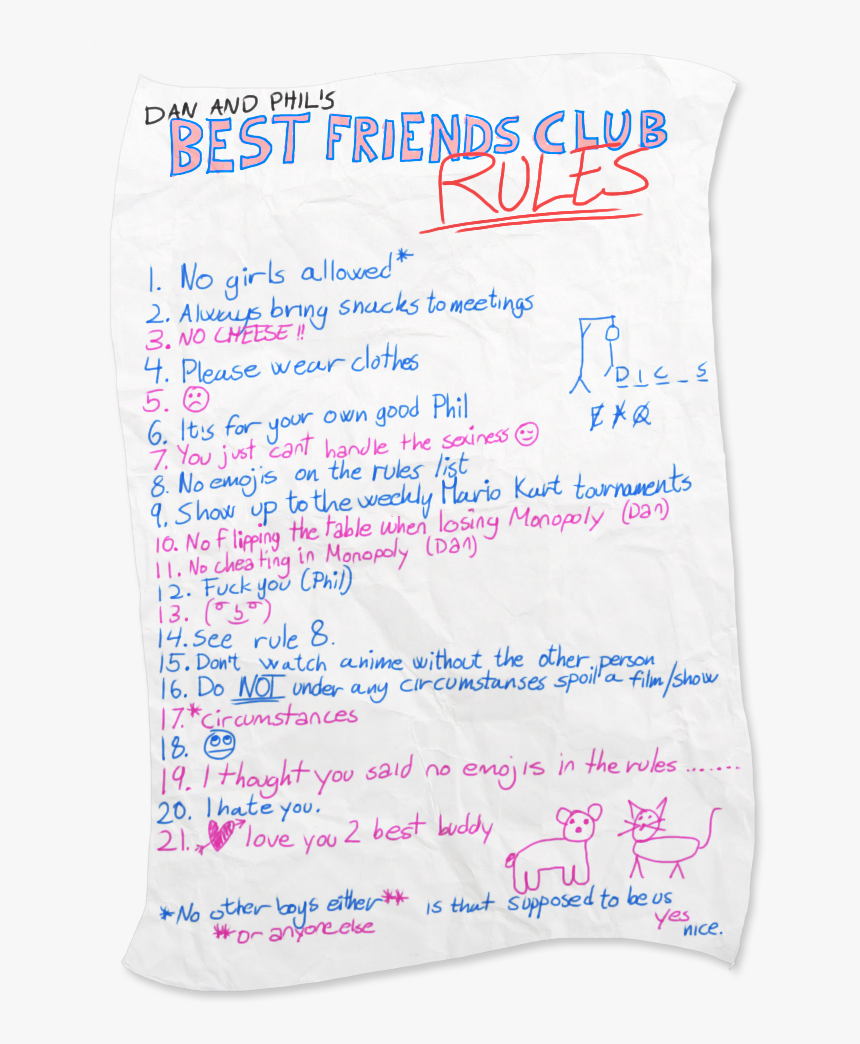 DAN AND PHIL'S
BEST FRIENDS CLUB
RULES
1. No girls allowed*
2. Always bring snacks to meetings
3. NO CHEESE!!
4. Please wear clothes
5. ☹
6. It's for your own good Phil
7. You just cant handle the sexiness 😏
8. No emojis on the rules list
9. Show up to the weekly Mario Kart tournaments
10. No flipping the table when losing Monopoly (Dan)
11. No cheating in Monopoly (Dan)
12. Fuck you (Phil)
13. ( ͡° ͜ʖ ͡°)
14. See rule 8.
15. Don't watch anime without the other person
16. Do NOT under any circumstanses spoil a film/show
17. *circumstances
18. 🙄
19. I thought you said no emojis in the rules.......
20. I hate you.
21. 💘 love you 2 best buddy
D I C _ S
E A Q
*No other boys either**
**or anyone else
is that supposed to be us
yes
nice.